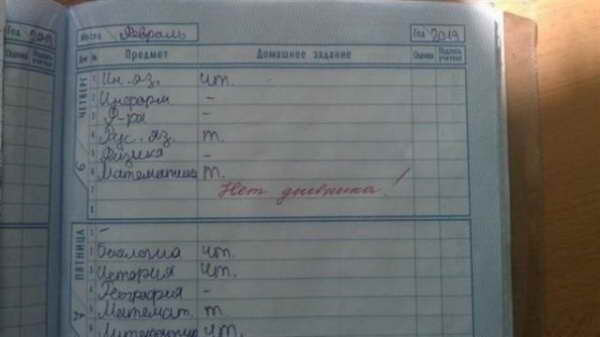 Год 2019
Оценка Подпись учителя
Месяц Февраль Год 2019
Дни № Предмет Домашнее задание Оценка Подпись учителя
ЧЕТВЕРГ
1 Ин. яз. чт.
2 Информ -
3 Ф-ра -
4 Рус. яз. т.
5 Физика -
6 Математика т.
7 Нет дневника!
8
ПЯТНИЦА
1 -
2 Биология чт.
3 История чт.
4 География -
5 Математ. т
6 Литература чт.